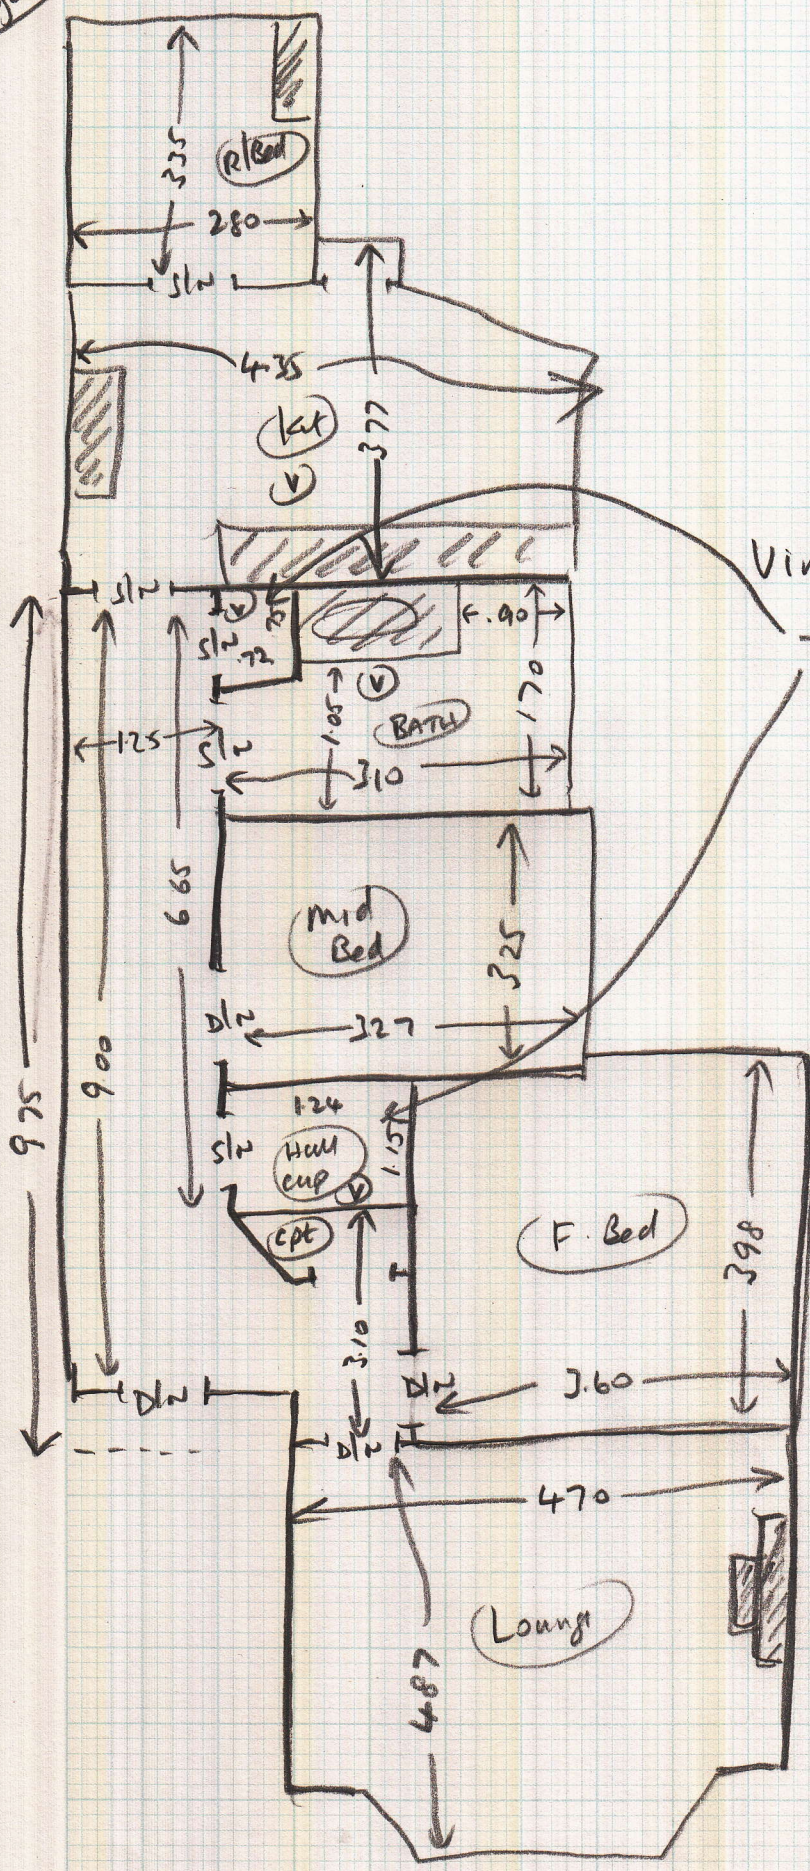 335
R/Bed
280
S/N
4.35
Kit
V
377
Vin
S/N
V
.75
S/N
.72
.90
V
1.05
BATH
170
125
S/N
310
665
Mid
Bed
325
D/N
327
900
975
1.24
S/N
Hall
cup
1.15
V
cpt
F. Bed
398
3.10
D/N
3.60
D/N
D/N
470
Lounge
487